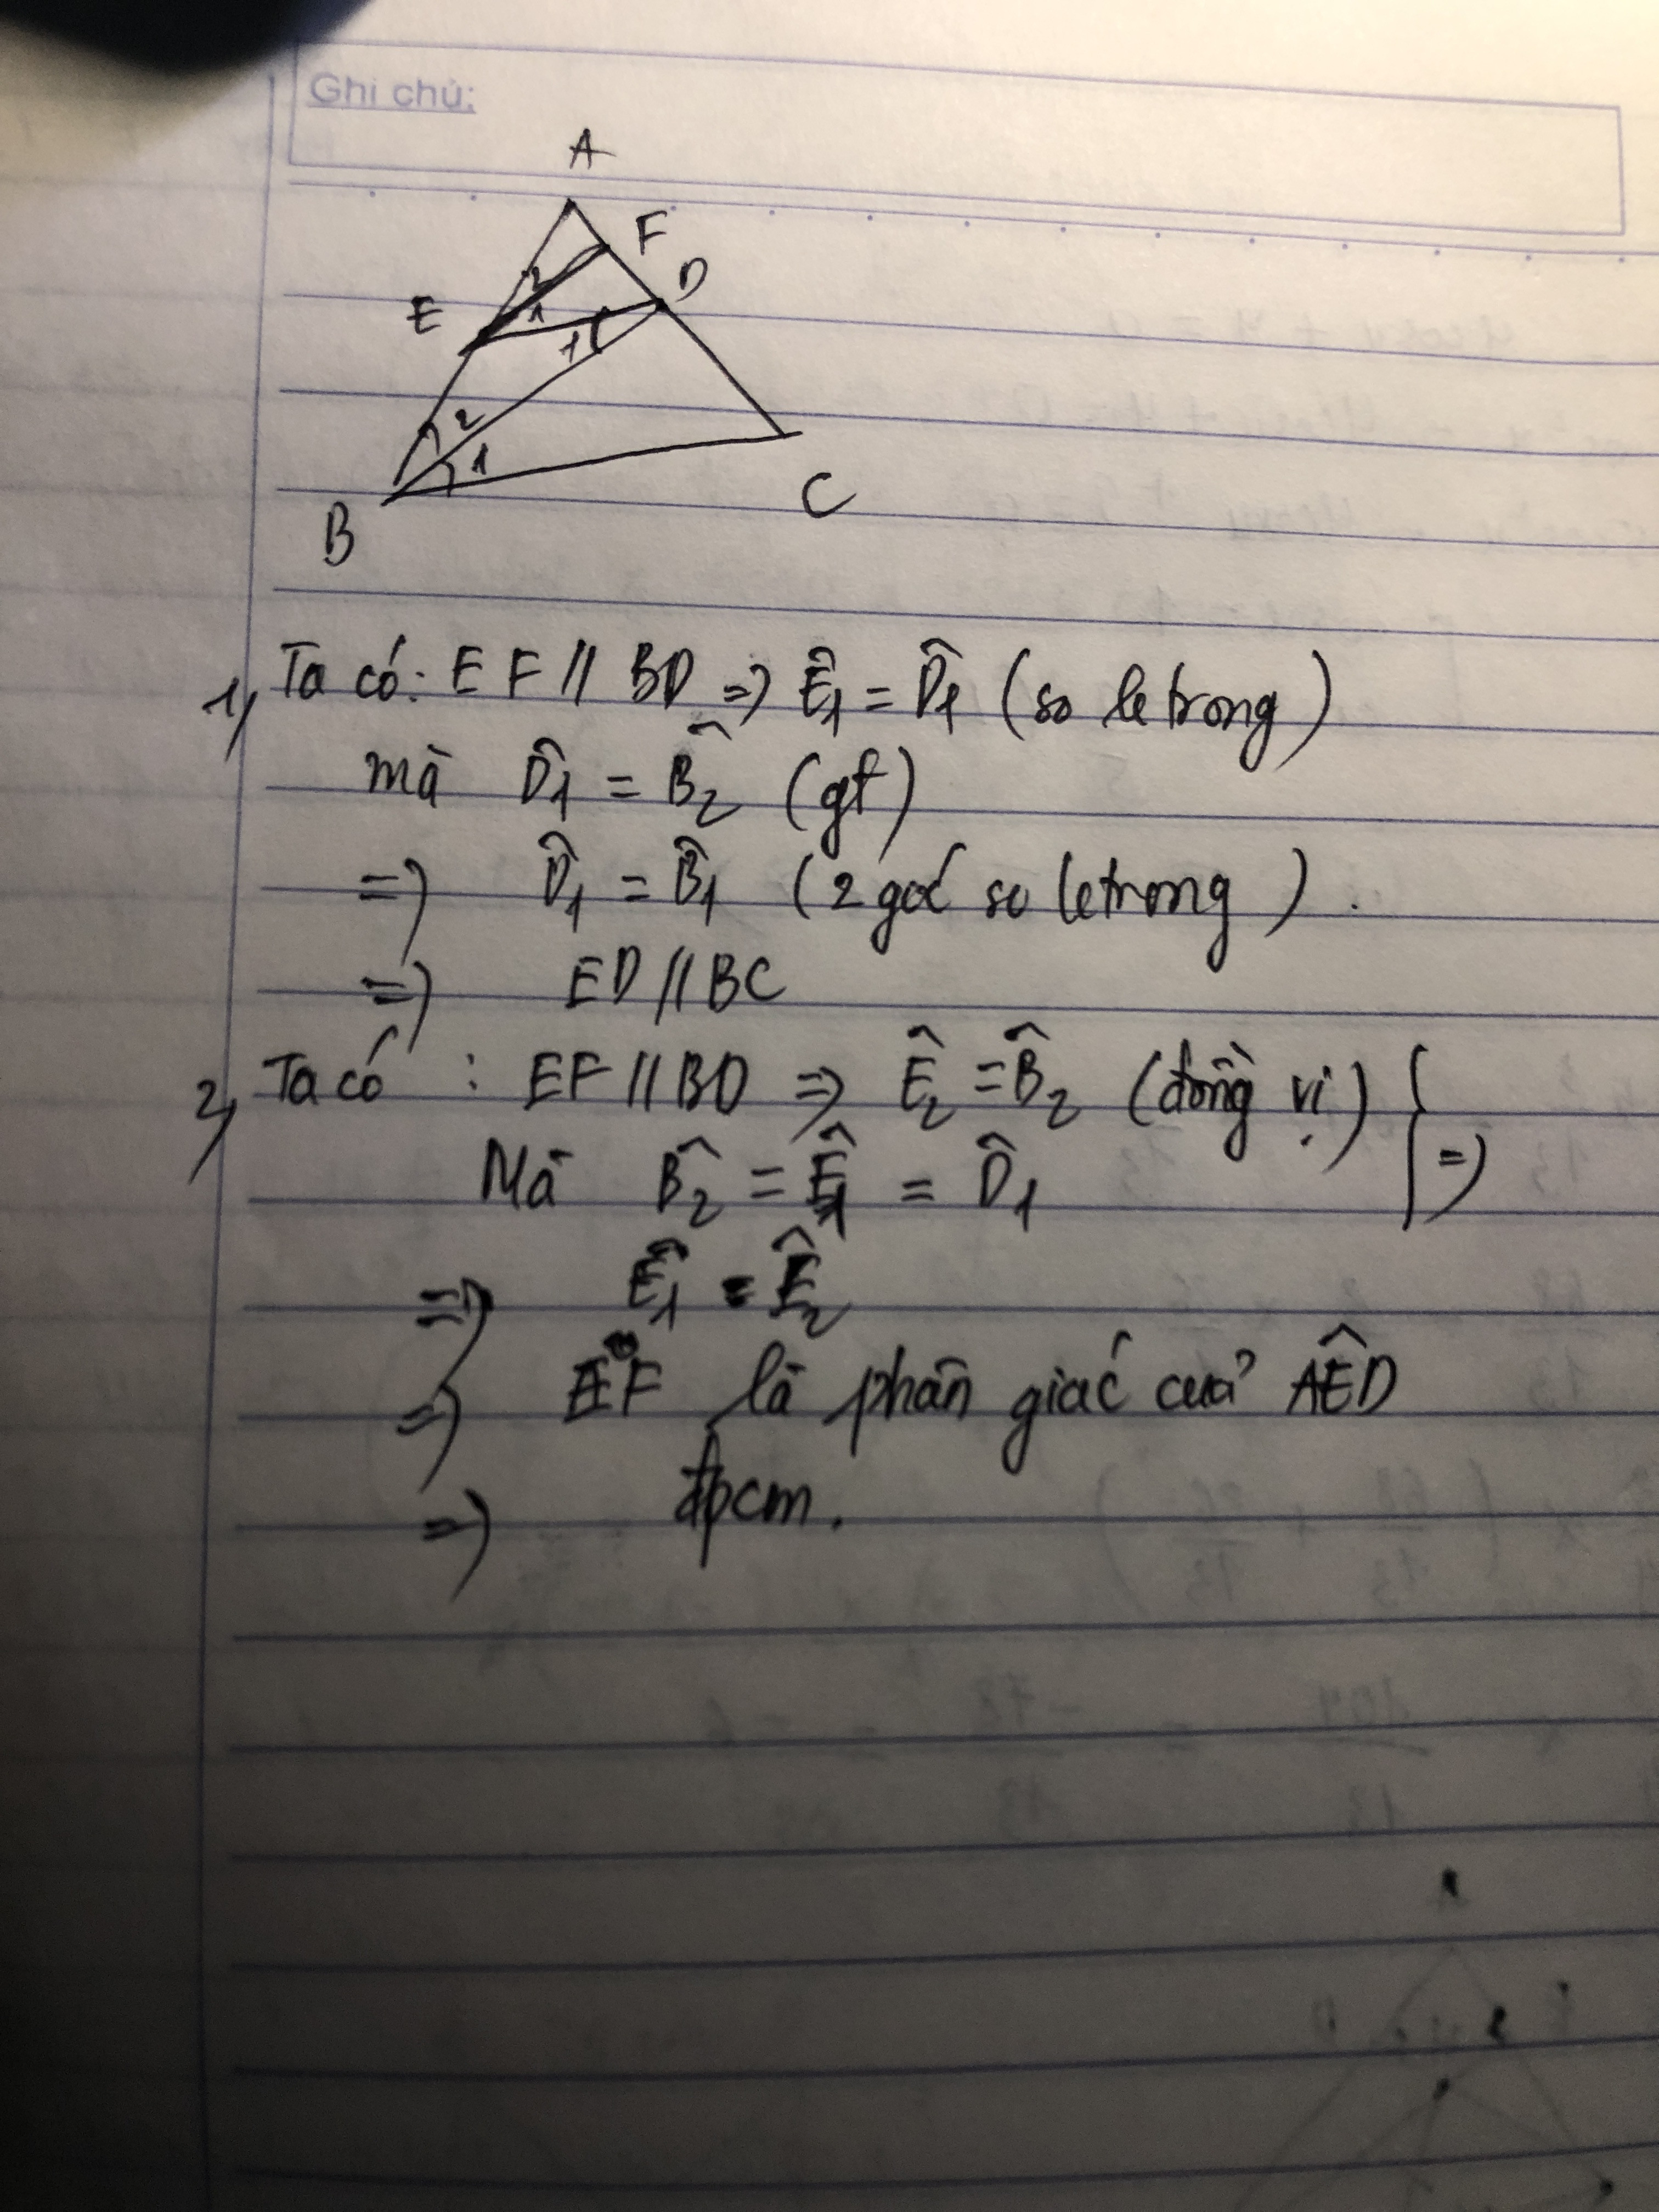 Ghi chú:
A
F
D
E
2
1
1
2
1
B
C
1, Ta có: EF // BD => Ê1 = D̂1 (so le trong)
mà D̂1 = B̂2 (gt)
=> D̂1 = B̂1 (2 góc so le trong).
=> ED // BC
2, Ta có : EF // BD => Ê2 = B̂2 (đồng vị) } =>
Mà B̂2 = Ê1 = D̂1
=> Ê1 = Ê2
=> EF là phân giác của AÊD
=> đpcm.